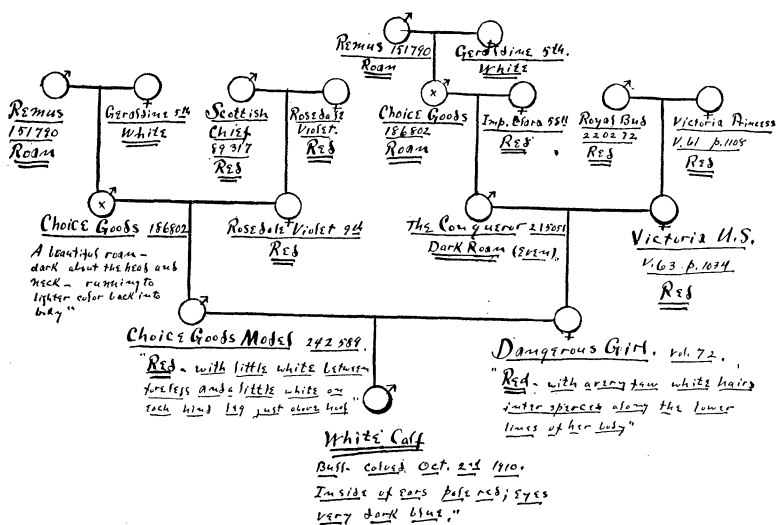 Remus 151790
Roan
Geraldine 5th.
White
Remus
151790
Roan
Geraldine 5th
White
Scottish
Chief
89317
Red
Rosedale
Violet.
Red
Choice Goods
186802
Roan
Imp. Clara 58th
Red
Royal Bud
220272
Red
Victoria Princess
V.61 p.1108
Red
Choice Goods 186802
A beautiful roan -
dark about the head and
neck - running to
lighter color back into
body"
Rosedale Violet 9th
Red
The Conqueror 215051
Dark Roan (Even).
Victoria U.S.
V.63. p.1034
Red
Choice Goods Model 242589.
"Red - with little white between
forelegs and a little white on
each hind leg just above hoof"
Dangerous Girl. vol. 72.
"Red - with a very few white hairs
interspersed along the lower
lines of her body"
White Calf
Bull - calved Oct. 2nd 1910.
Inside of ears pale red; eyes
very dark blue."